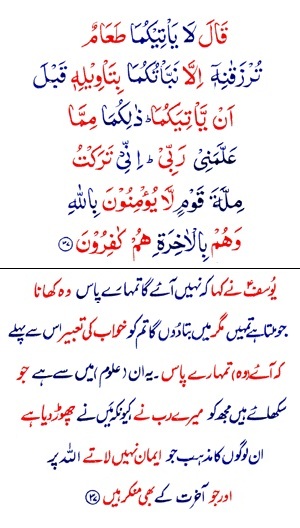 قَالَ لَا يَاْتِيْكُمَا طَعَامٌ
تُرْزَقٰنِهٖۤ اِلَّا نَبَّاْتُكُمَا بِتَاْوِيْلِهٖ قَبْلَ
اَنْ يَّاْتِيَكُمَا ؕ ذٰلِكُمَا مِمَّا
عَلَّمَنِىْ رَبِّىْ ؕ اِنِّىْ تَرَكْتُ
مِلَّةَ قَوْمٍ لَّا يُؤْمِنُوْنَ بِاللّٰهِ
وَهُمْ بِالْاٰخِرَةِ هُمْ كٰفِرُوْنَ ﴿۳۷﴾
یُوسف۴ نے کہا کہ نہیں آئے گا تمہارے پاس وہ کھانا
جو ملتا ہے تمہیں مگر میں بتادُوں گا تم کو خواب کی تعبیر اس سے پہلے
کہ آئے (وہ) تمہارے پاس ۔ یہ ان (علوم) میں سے ہے جو
سکھائے ہیں مجھ کو میرے رب نے کیونکہ میں نے چھوڑ دیا ہے
ان لوگوں کا مذہب جو ایمان نہیں لاتے اللہ پر
اور جو آخرت کے بھی منکر ہیں ﴿۳۷﴾